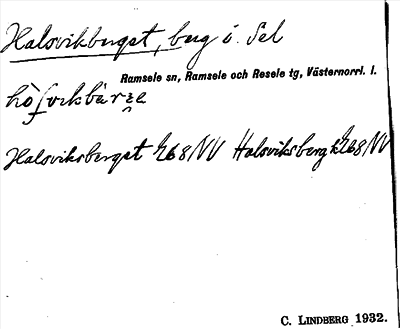 Halsvikberget, berg i Sel
Ramsele sn, Ramsele och Resele tg, Västernorrl. l.
Halsviksberget 268 NV Halsviksberg k 268 NV
C. LINDBERG 1932.